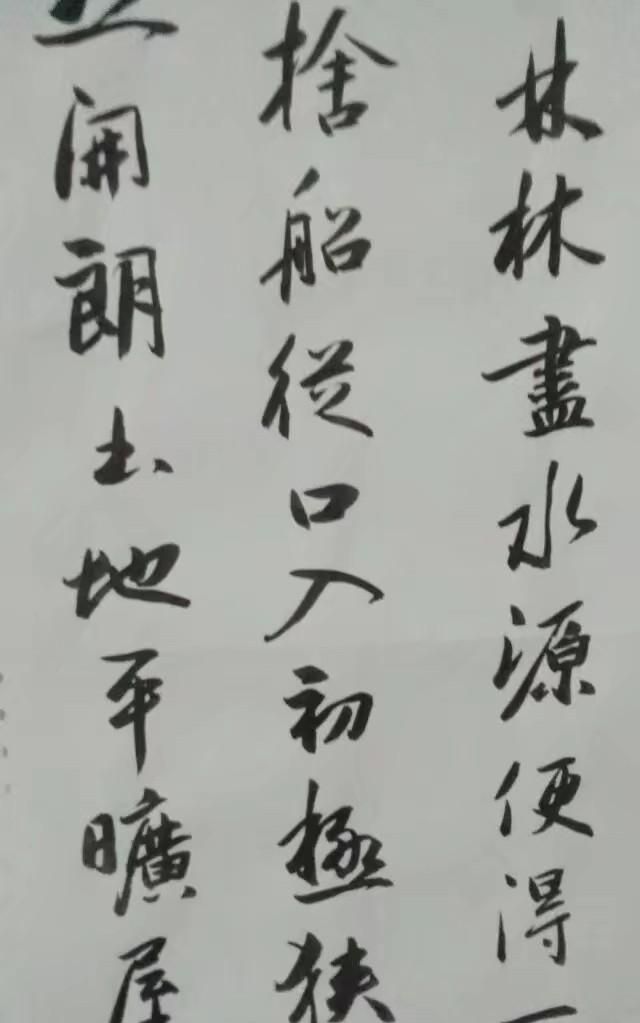 林林盡水源便得一
捨船從口入初極狹
開朗土地平曠屋